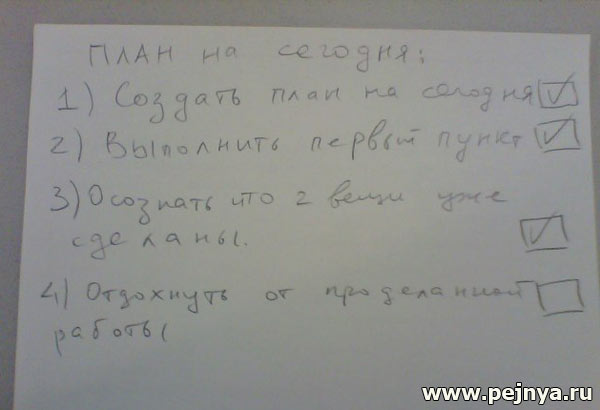 ПЛАН на сегодня:
1) Создать план на сегодня
2) Выполнить первый пункт
3) Осознать что 2 вещи уже
сделаны.
4) Отдохнуть от проделанной
работы
www.pejnya.ru